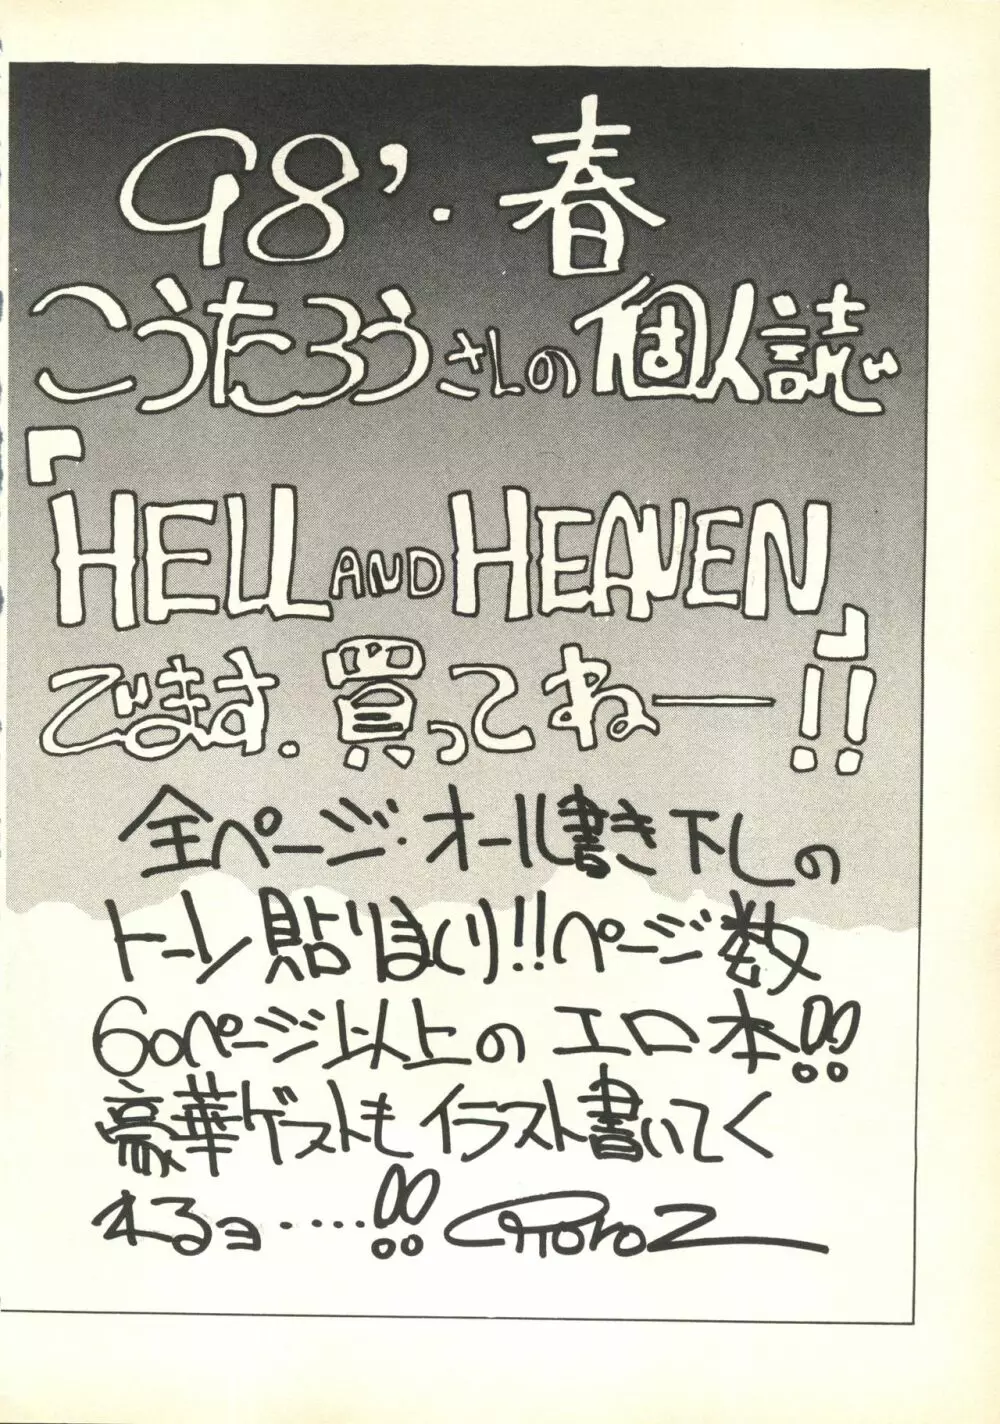 98'・春
こうたろうさんの個人誌が
『HELL AND HEAVEN』
でます。買ってねー!!
全ページ・オール書き下しの
トーン貼りまくり!!ページ数
60ページ以上のエロ本!!
豪華ゲストもイラスト書いてく
れるョ・・・・・!!